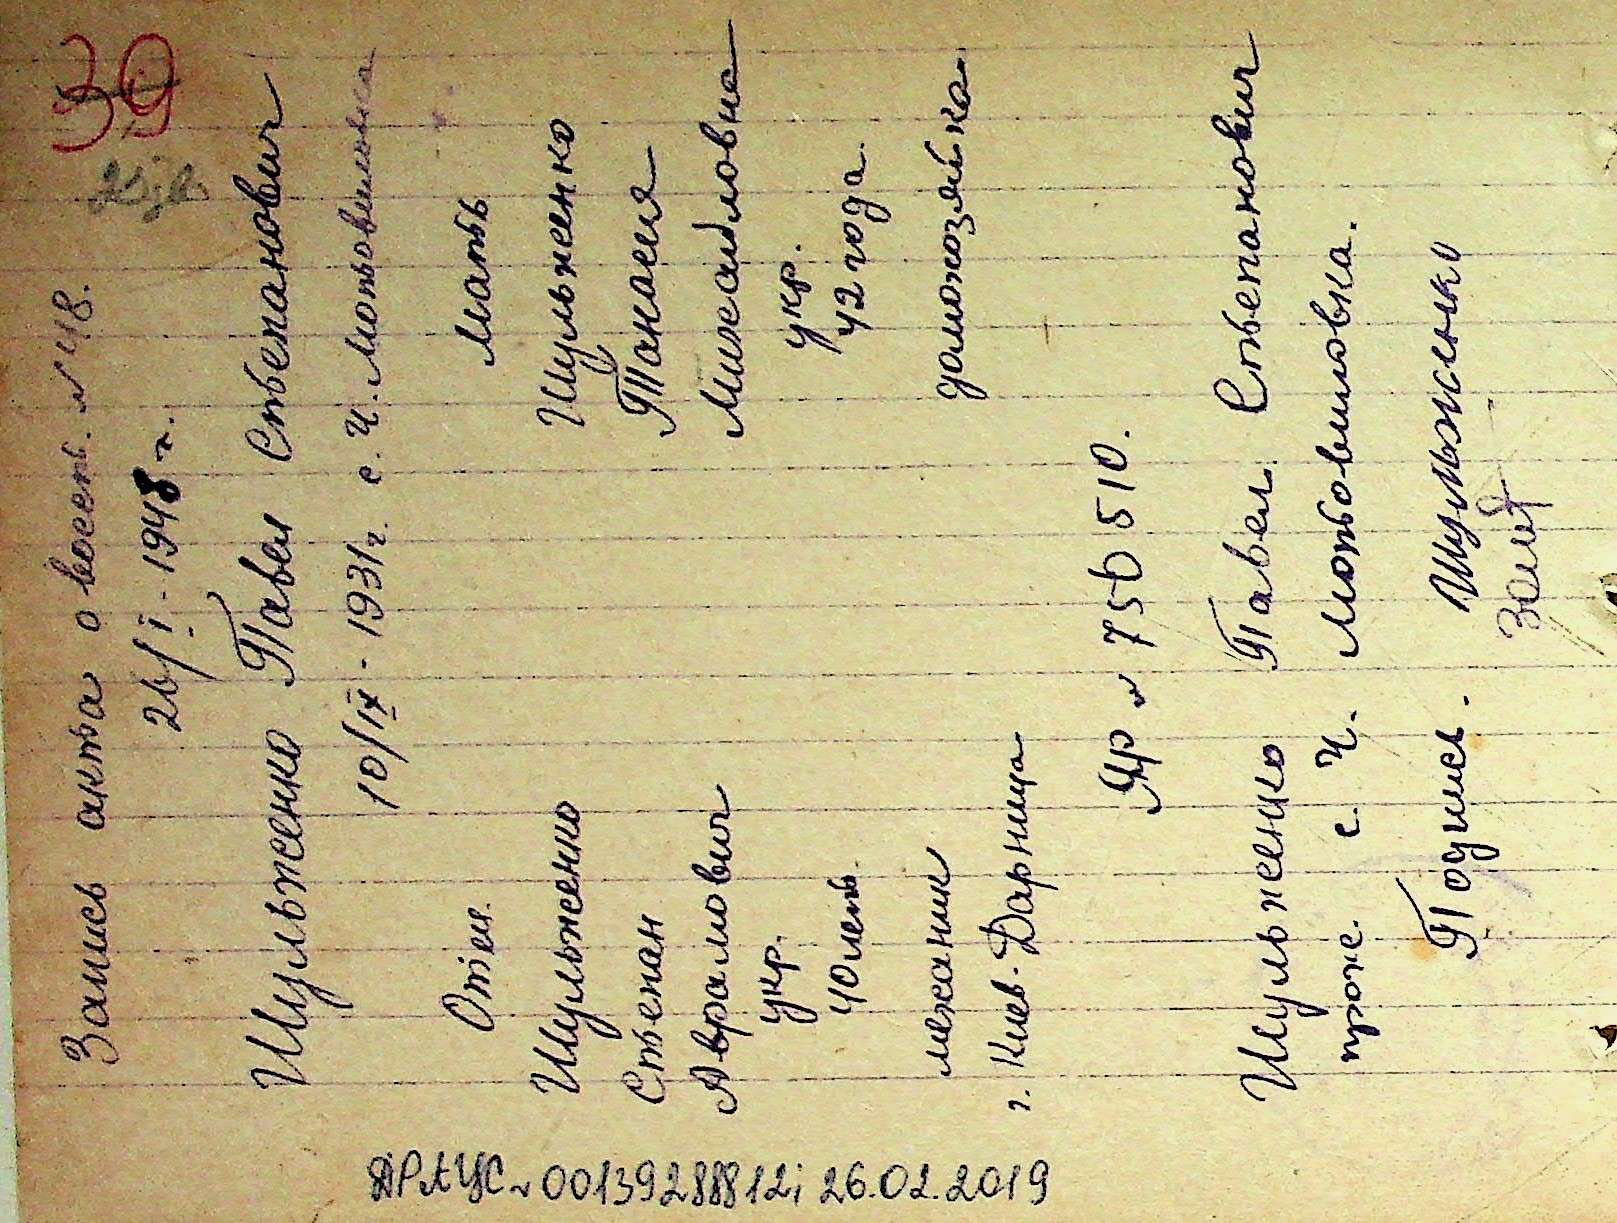 39
Запись акта о восст. № 48.
26/I - 1948 г.
Шульженко Павел Степанович
10/IX - 1931 г. с. Ч. Мотовиловка
Отец. Мать
Шульженко Шульженко
Степан Танасия
Аврамович Михайловна
укр. укр.
40 лет 42 года.
механик домохозяйка
г. Киев-Дарница
ЯР № 756510.
Шульженко Павел Степанович
прож. с. Ч. Мотовиловка.
Подпись. Шульженко
ДРАЦС № 00139288812; 26.02.2019